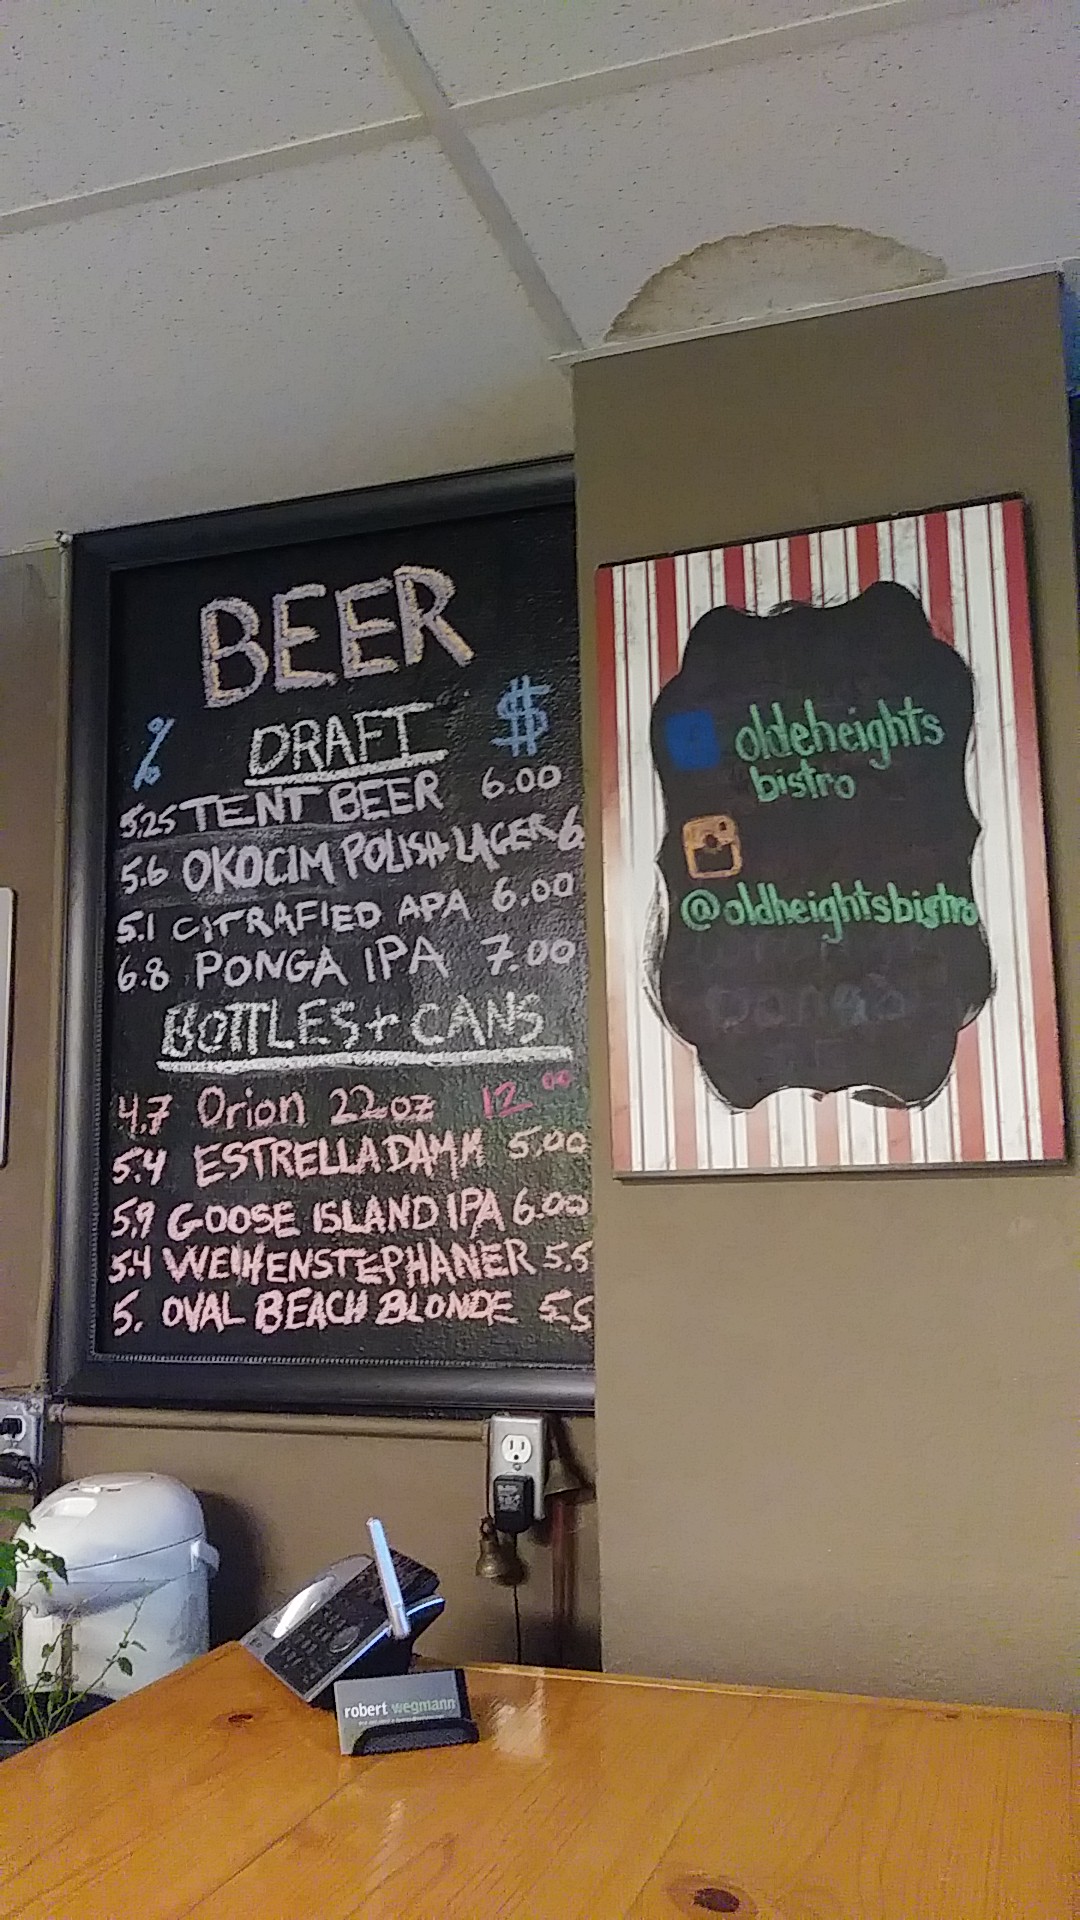 BEER
% DRAFT $
5.25 TENT BEER 6.00
5.6 OKOCIM POLISH LAGER 6
5.1 CITRAFIED APA 6.00
6.8 PONGA IPA 7.00
BOTTLES + CANS
4.7 Orion 22oz 12 00
5.4 ESTRELLA DAMM 5.00
5.9 GOOSE ISLAND IPA 6.00
5.4 WEIHENSTEPHANER 5.5
5. OVAL BEACH BLONDE 5.5
oldeheights
bistro
@oldheightsbistro
robert wegmann